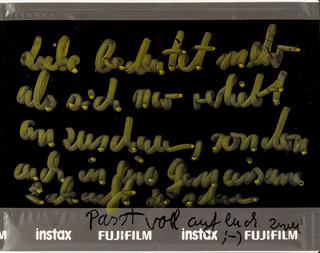 Liebe bedeutet mehr
als sich nur verliebt
anzuschauen, sondern
auch in eine gemeinsame
Zukunft
Passt voll auf Euch zwei
;-)
instax FUJIFILM instax FUJIFILM